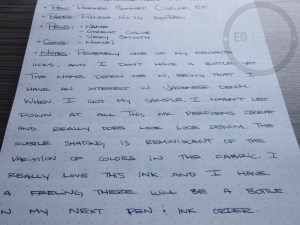 • Pen: Parker Sonnet
• Note:
• Pros: - Name
- Great Color
- Very Smooth
• Cons: - None!
• Notes: Probably one of my
inks, and I don't have a bottle yet
The name drew me in, being that I
have an interest in Japanese denim.
When I got my sample, I wasn't let
down at all. This ink performs great
and really does look like denim. The
subtle shading is reminiscent of the
variation of colors in the fabric. I
really love this ink and I have
a feeling there will be a bottle
in my next pen & ink order.
ED